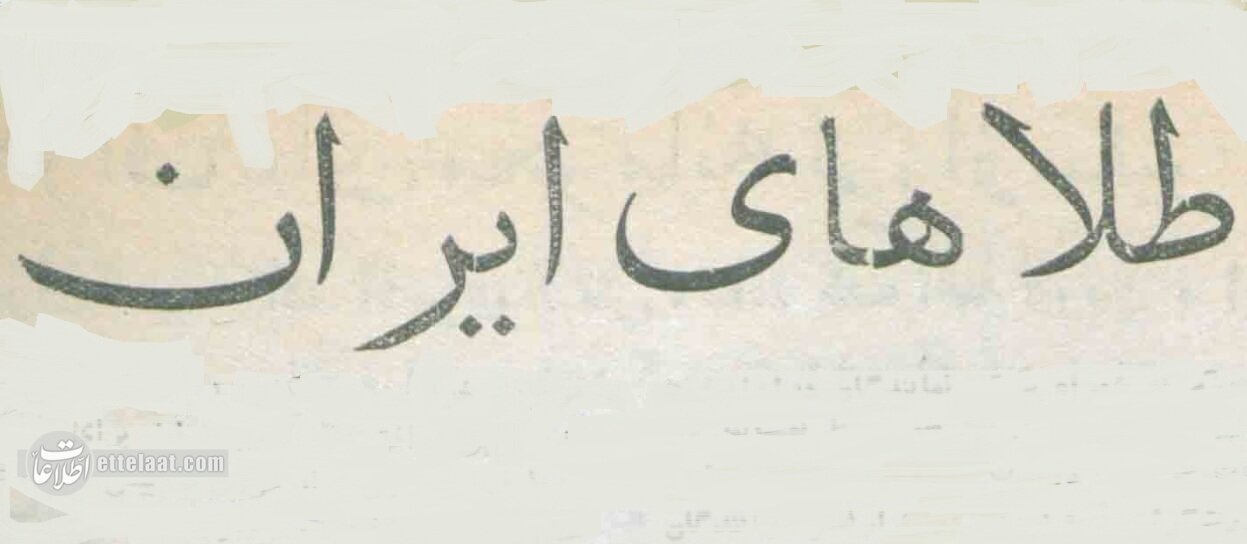 طلاهای ایران
اطلاعات ettelaat.com